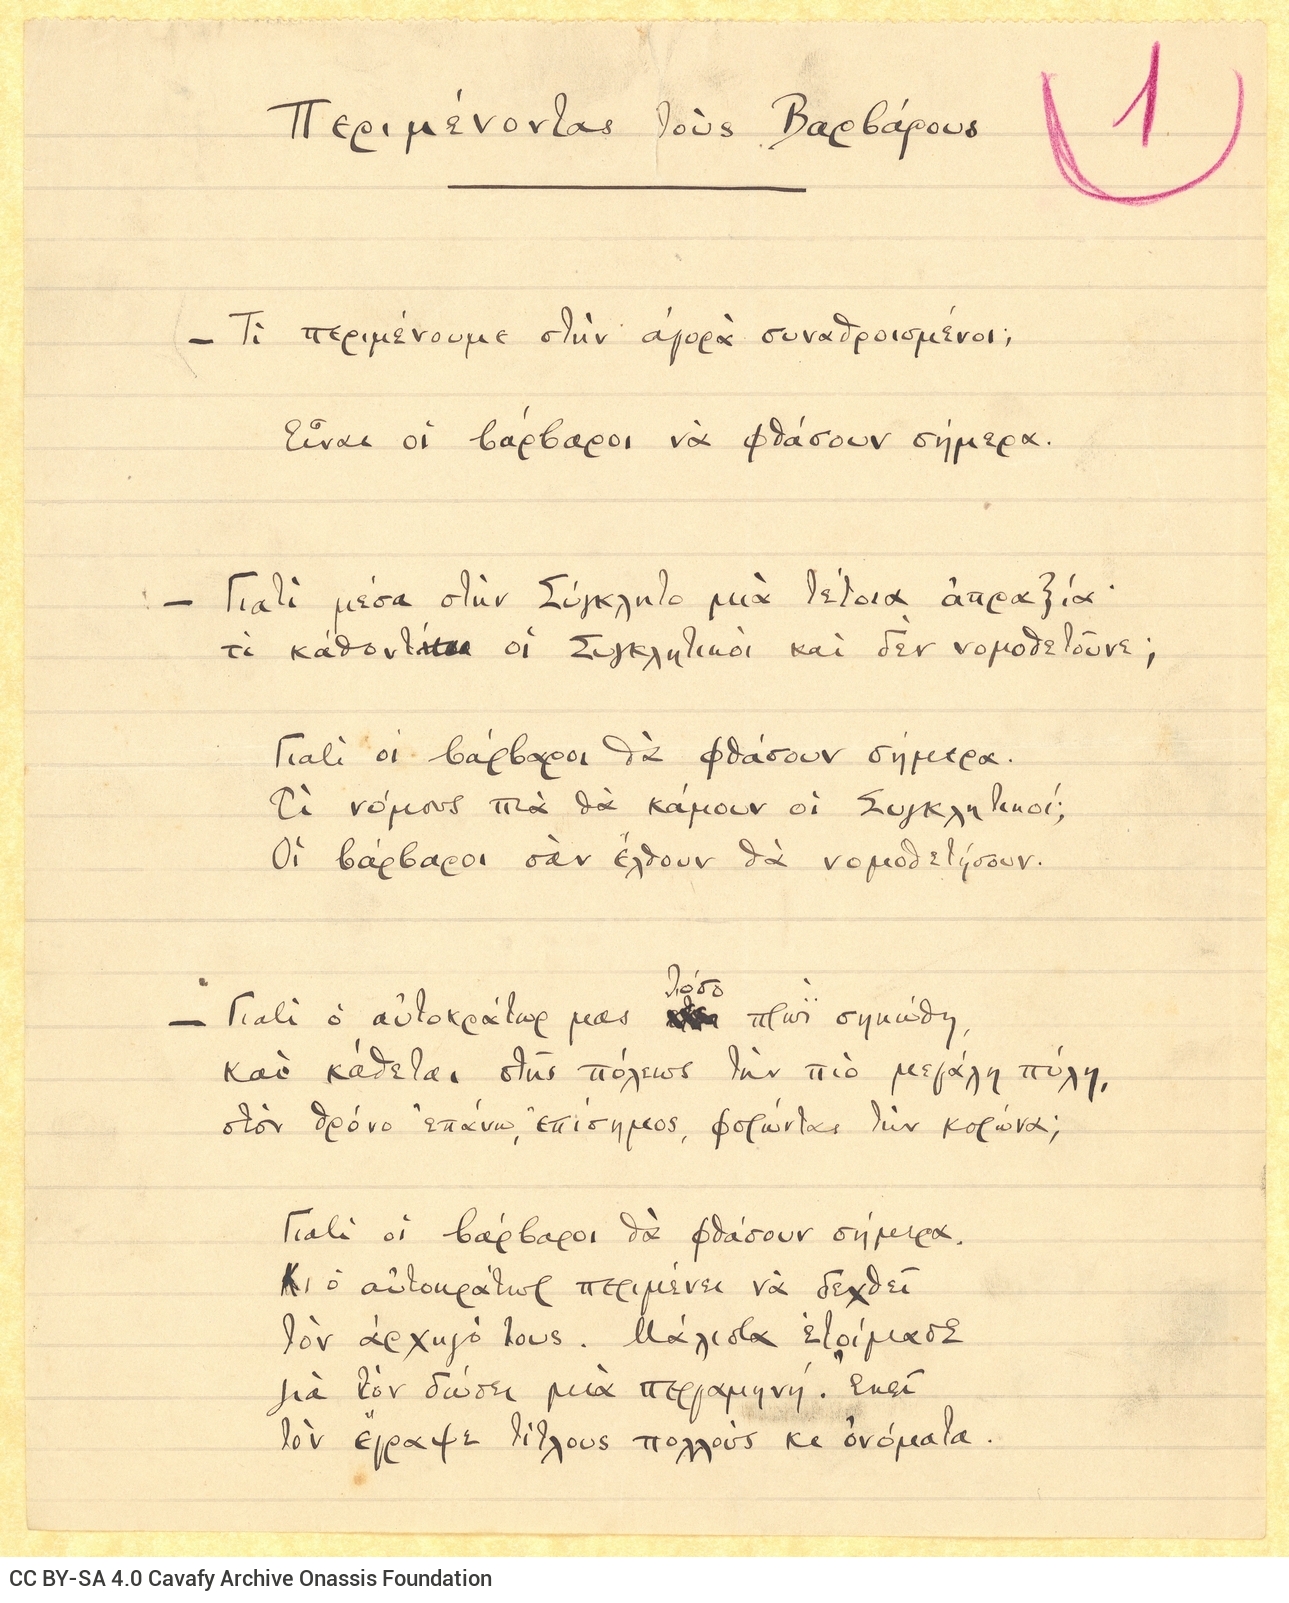 Περιμένοντας τοὺς Βαρβάρους
1
– Τί περιμένουμε στὴν ἀγορὰ συναθροισμένοι;
Εἶναι οἱ βάρβαροι νὰ φθάσουν σήμερα.
– Γιατὶ μέσα στὴν Σύγκλητο μιὰ τέτοια ἀπραξία·
τὶ κάθοντ οἱ Συγκλητικοὶ καὶ δὲν νομοθετοῦνε;
Γιατὶ οἱ βάρβαροι θὰ φθάσουν σήμερα.
Τὶ νόμους πιὰ θὰ κάμουν οἱ Συγκλητικοί;
Οἱ βάρβαροι σὰν ἔλθουν θὰ νομοθετήσουν.
τόσο
– Γιατὶ ὁ αὐτοκράτωρ μας πρωῒ σηκώθη,
καὶ κάθεται στῆς πόλεως τὴν πιὸ μεγάλη πύλη,
στὸν θρόνο ἐπάνω, ἐπίσημος, φορώντας τὴν κορώνα;
Γιατὶ οἱ βάρβαροι θὰ φθάσουν σήμερα.
Κι ὁ αὐτοκράτωρ περιμένει νὰ δεχθεῖ
τὸν ἀρχηγό τους. Μάλιστα ἑτοίμασε
γιὰ τὸν δώσει μιὰ περγαμηνή. Ἐκεῖ
τὸν ἔγραψε τίτλους πολλοὺς κι ὀνόματα.
CC BY-SA 4.0 Cavafy Archive Onassis Foundation